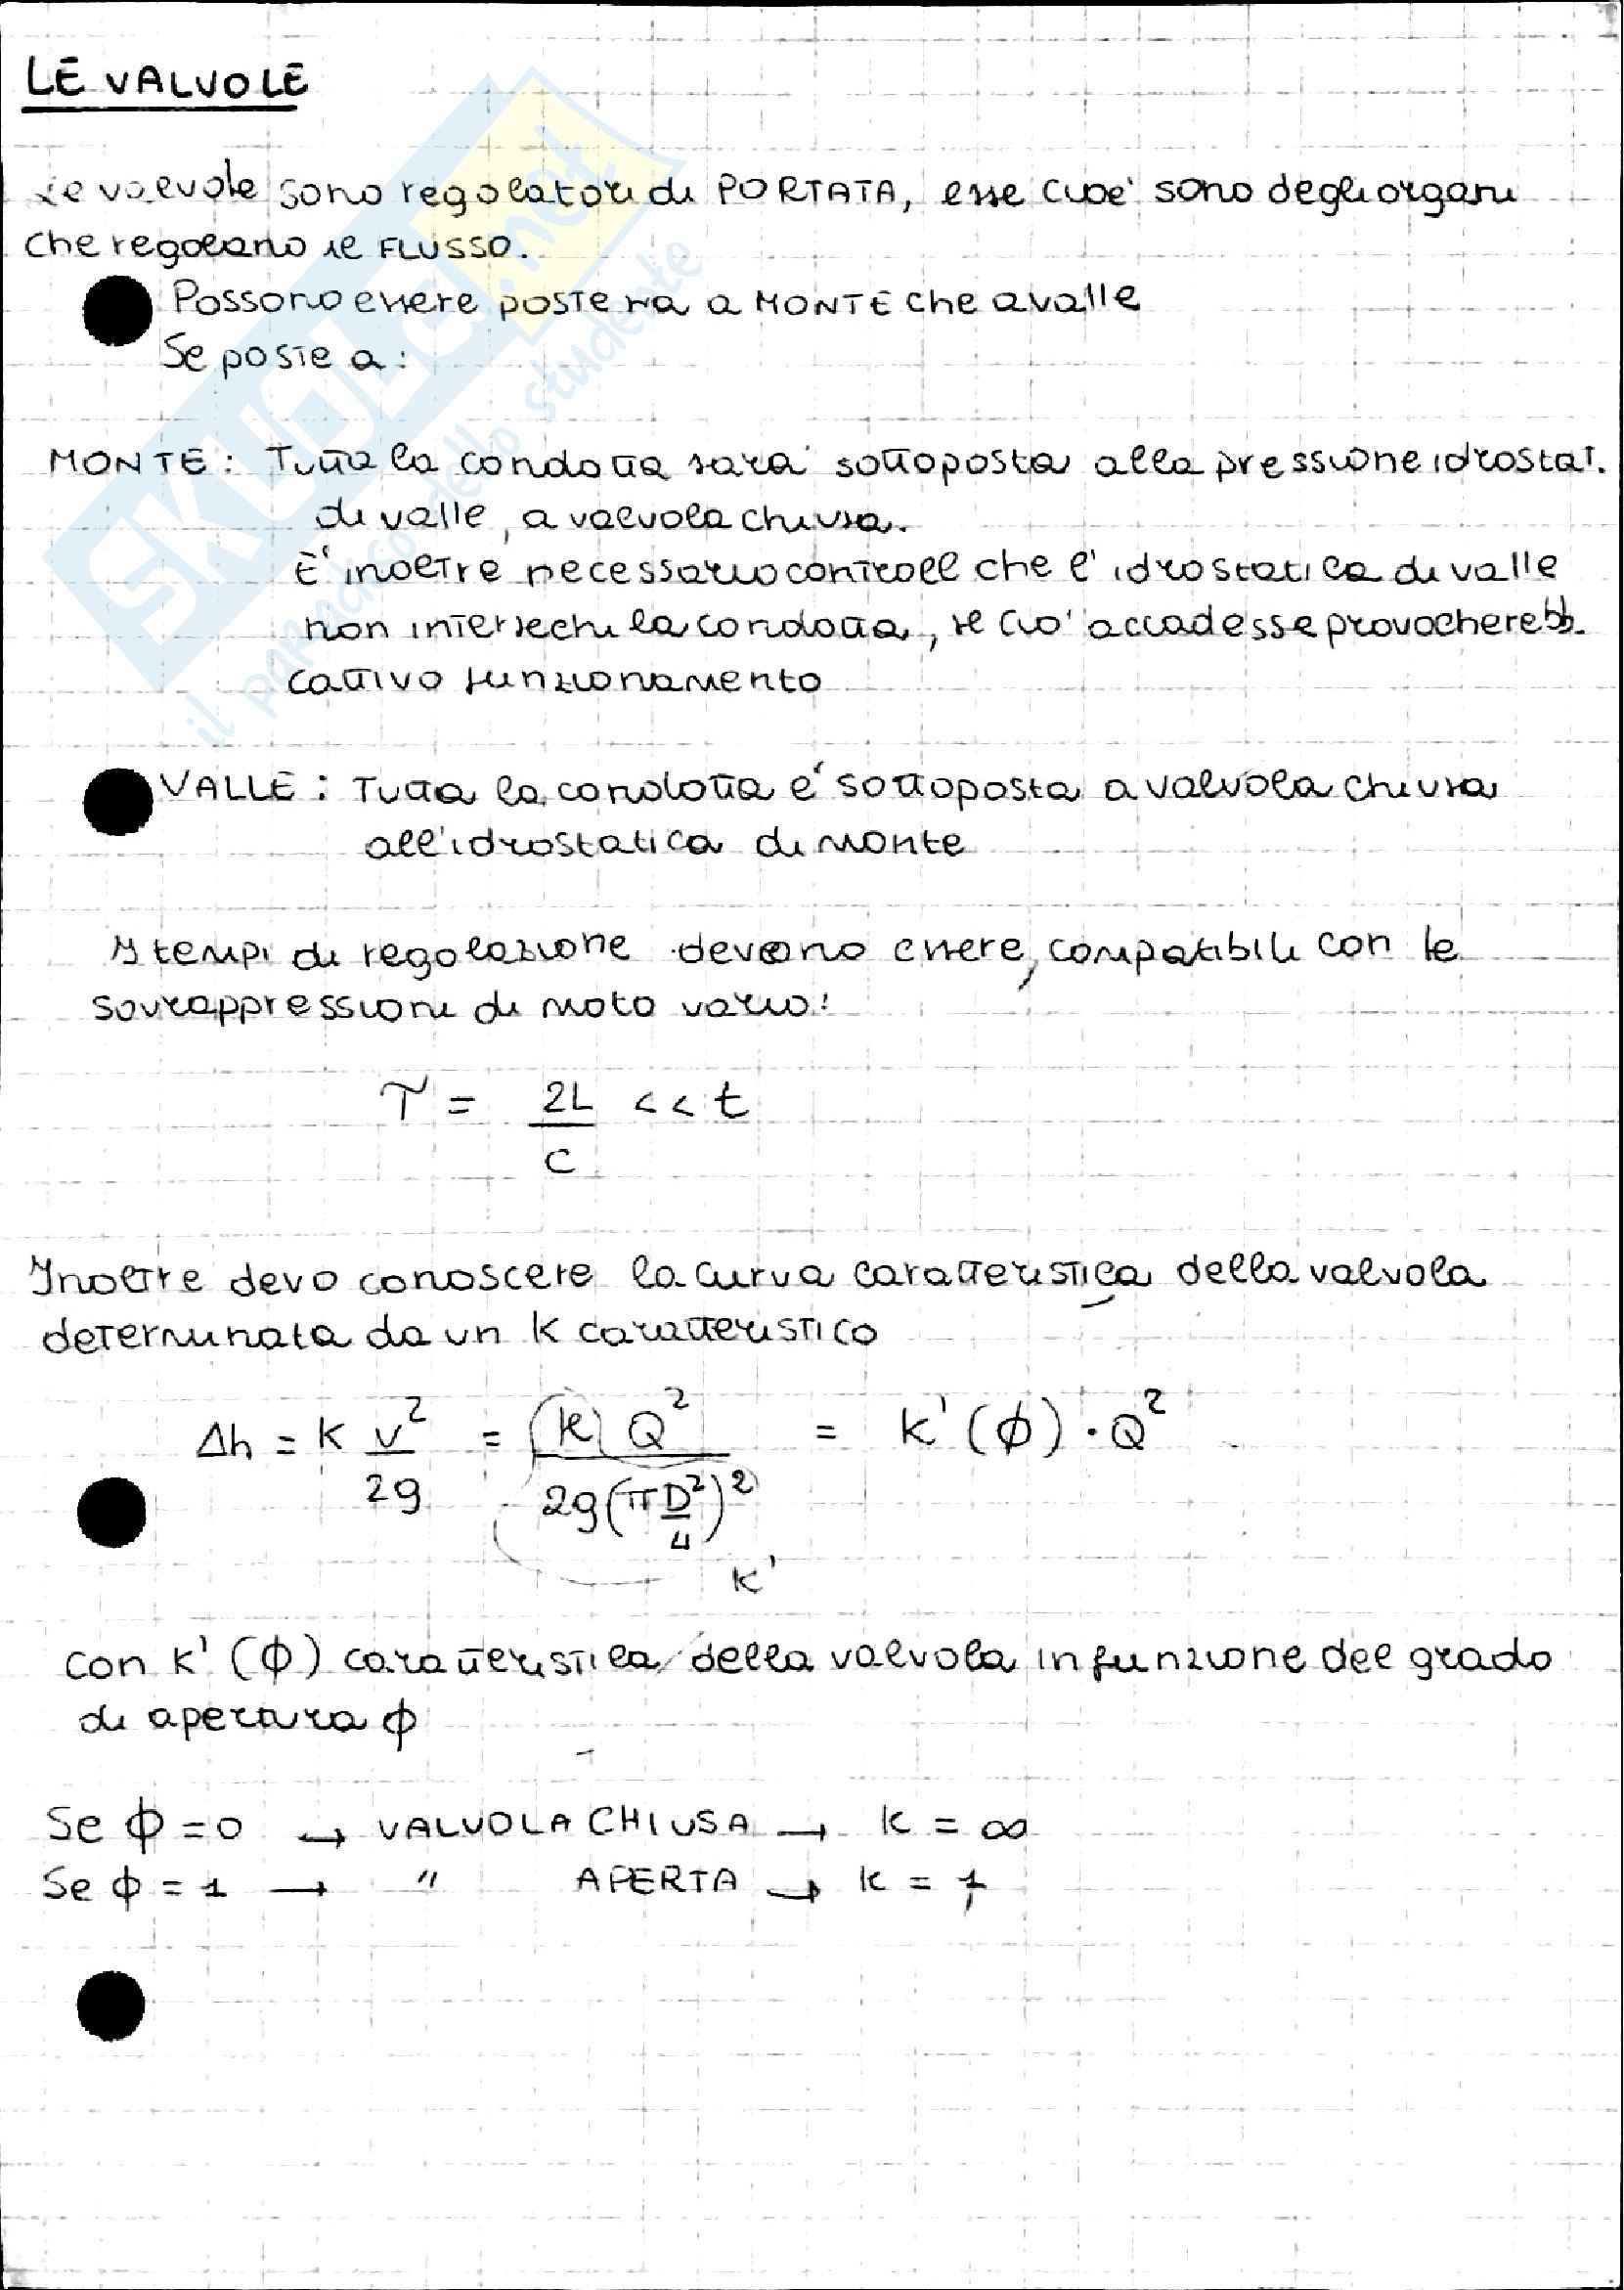 LE VALVOLE
Le valvole sono regolatori di PORTATA, esse cioè sono degli organi
che regolano il FLUSSO.
Possono essere poste sia a MONTE che a valle
Se poste a:
MONTE: Tutta la condotta sarà sottoposta alla pressione idrostat.
di valle, a valvola chiusa.
E' inoltre necessario controll che l'idrostatica di valle
non intersechi la condotta, se ciò accadesse provocherebb.
cattivo funzionamento
VALLE: Tutta la condotta e' sottoposta a valvola chiusa
all'idrostatica di monte
I tempi di regolazione devono essere compatibili con le
sovrappressioni di moto vario:
τ = 2L/c << t
Inoltre devo conoscere la curva caratteristica della valvola
determinata da un K caratteristico
Δh = K v²/2g = (K) Q²/2g(π D²/4)² = K'(φ)·Q²
K'
con K'(φ) caratteristica della valvola in funzione del grado
di apertura φ
Se φ=0 → VALVOLA CHIUSA → K = ∞
Se φ=1 → " APERTA → K = 1
SKUOLA.net
il paradiso dello studente